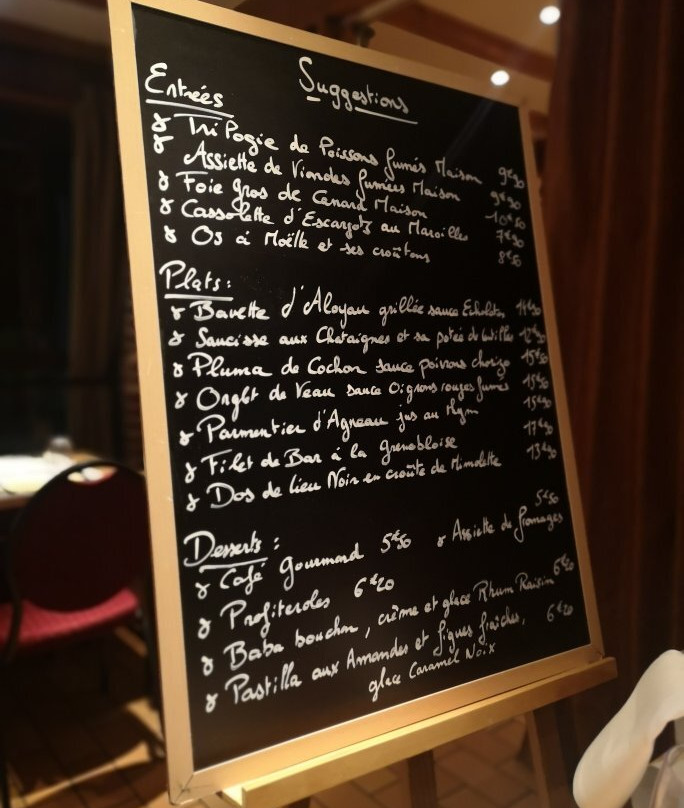 Suggestions
Entrées
Trilogie de Poissons fumés Maison 9€50
Assiette de Viandes fumées Maison 9€50
Foie gras de Canard Maison 10€50
Cassolette d'Escargots au Maroilles 7€50
Os à Moëlle et ses croûtons 8€50
Plats:
Bavette d'Aloyau grillée sauce Echalotes 14€50
Saucisse aux Chataignes et sa potée de lentilles 12€50
Pluma de Cochon sauce poivrons chorizo 15€50
Onglet de Veau sauce Oignons rouges fumés 15€50
Parmentier d'Agneau jus au thym 15€50
Filet de Bar à la Grenobloise 17€50
Dos de lieu Noir en croûte de Mimolette 13€50
Desserts:
Café gourmand 5€50 Assiette de fromages 5€50
Profiteroles 6€20
Baba bouchon, crème et glace Rhum Raisin 6€20
Pastilla aux Amandes et figues fraîches, 6€20
glace Caramel Noix